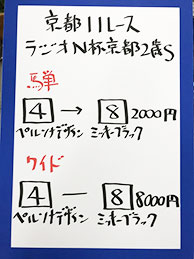 京都11レース
ラジオN杯京都2歳S
馬単
4 → 8 2000円
ペルソナデザイン ミッキーブラック
ワイド
4 — 8 8000円
ペルソナデザイン ミッキーブラック